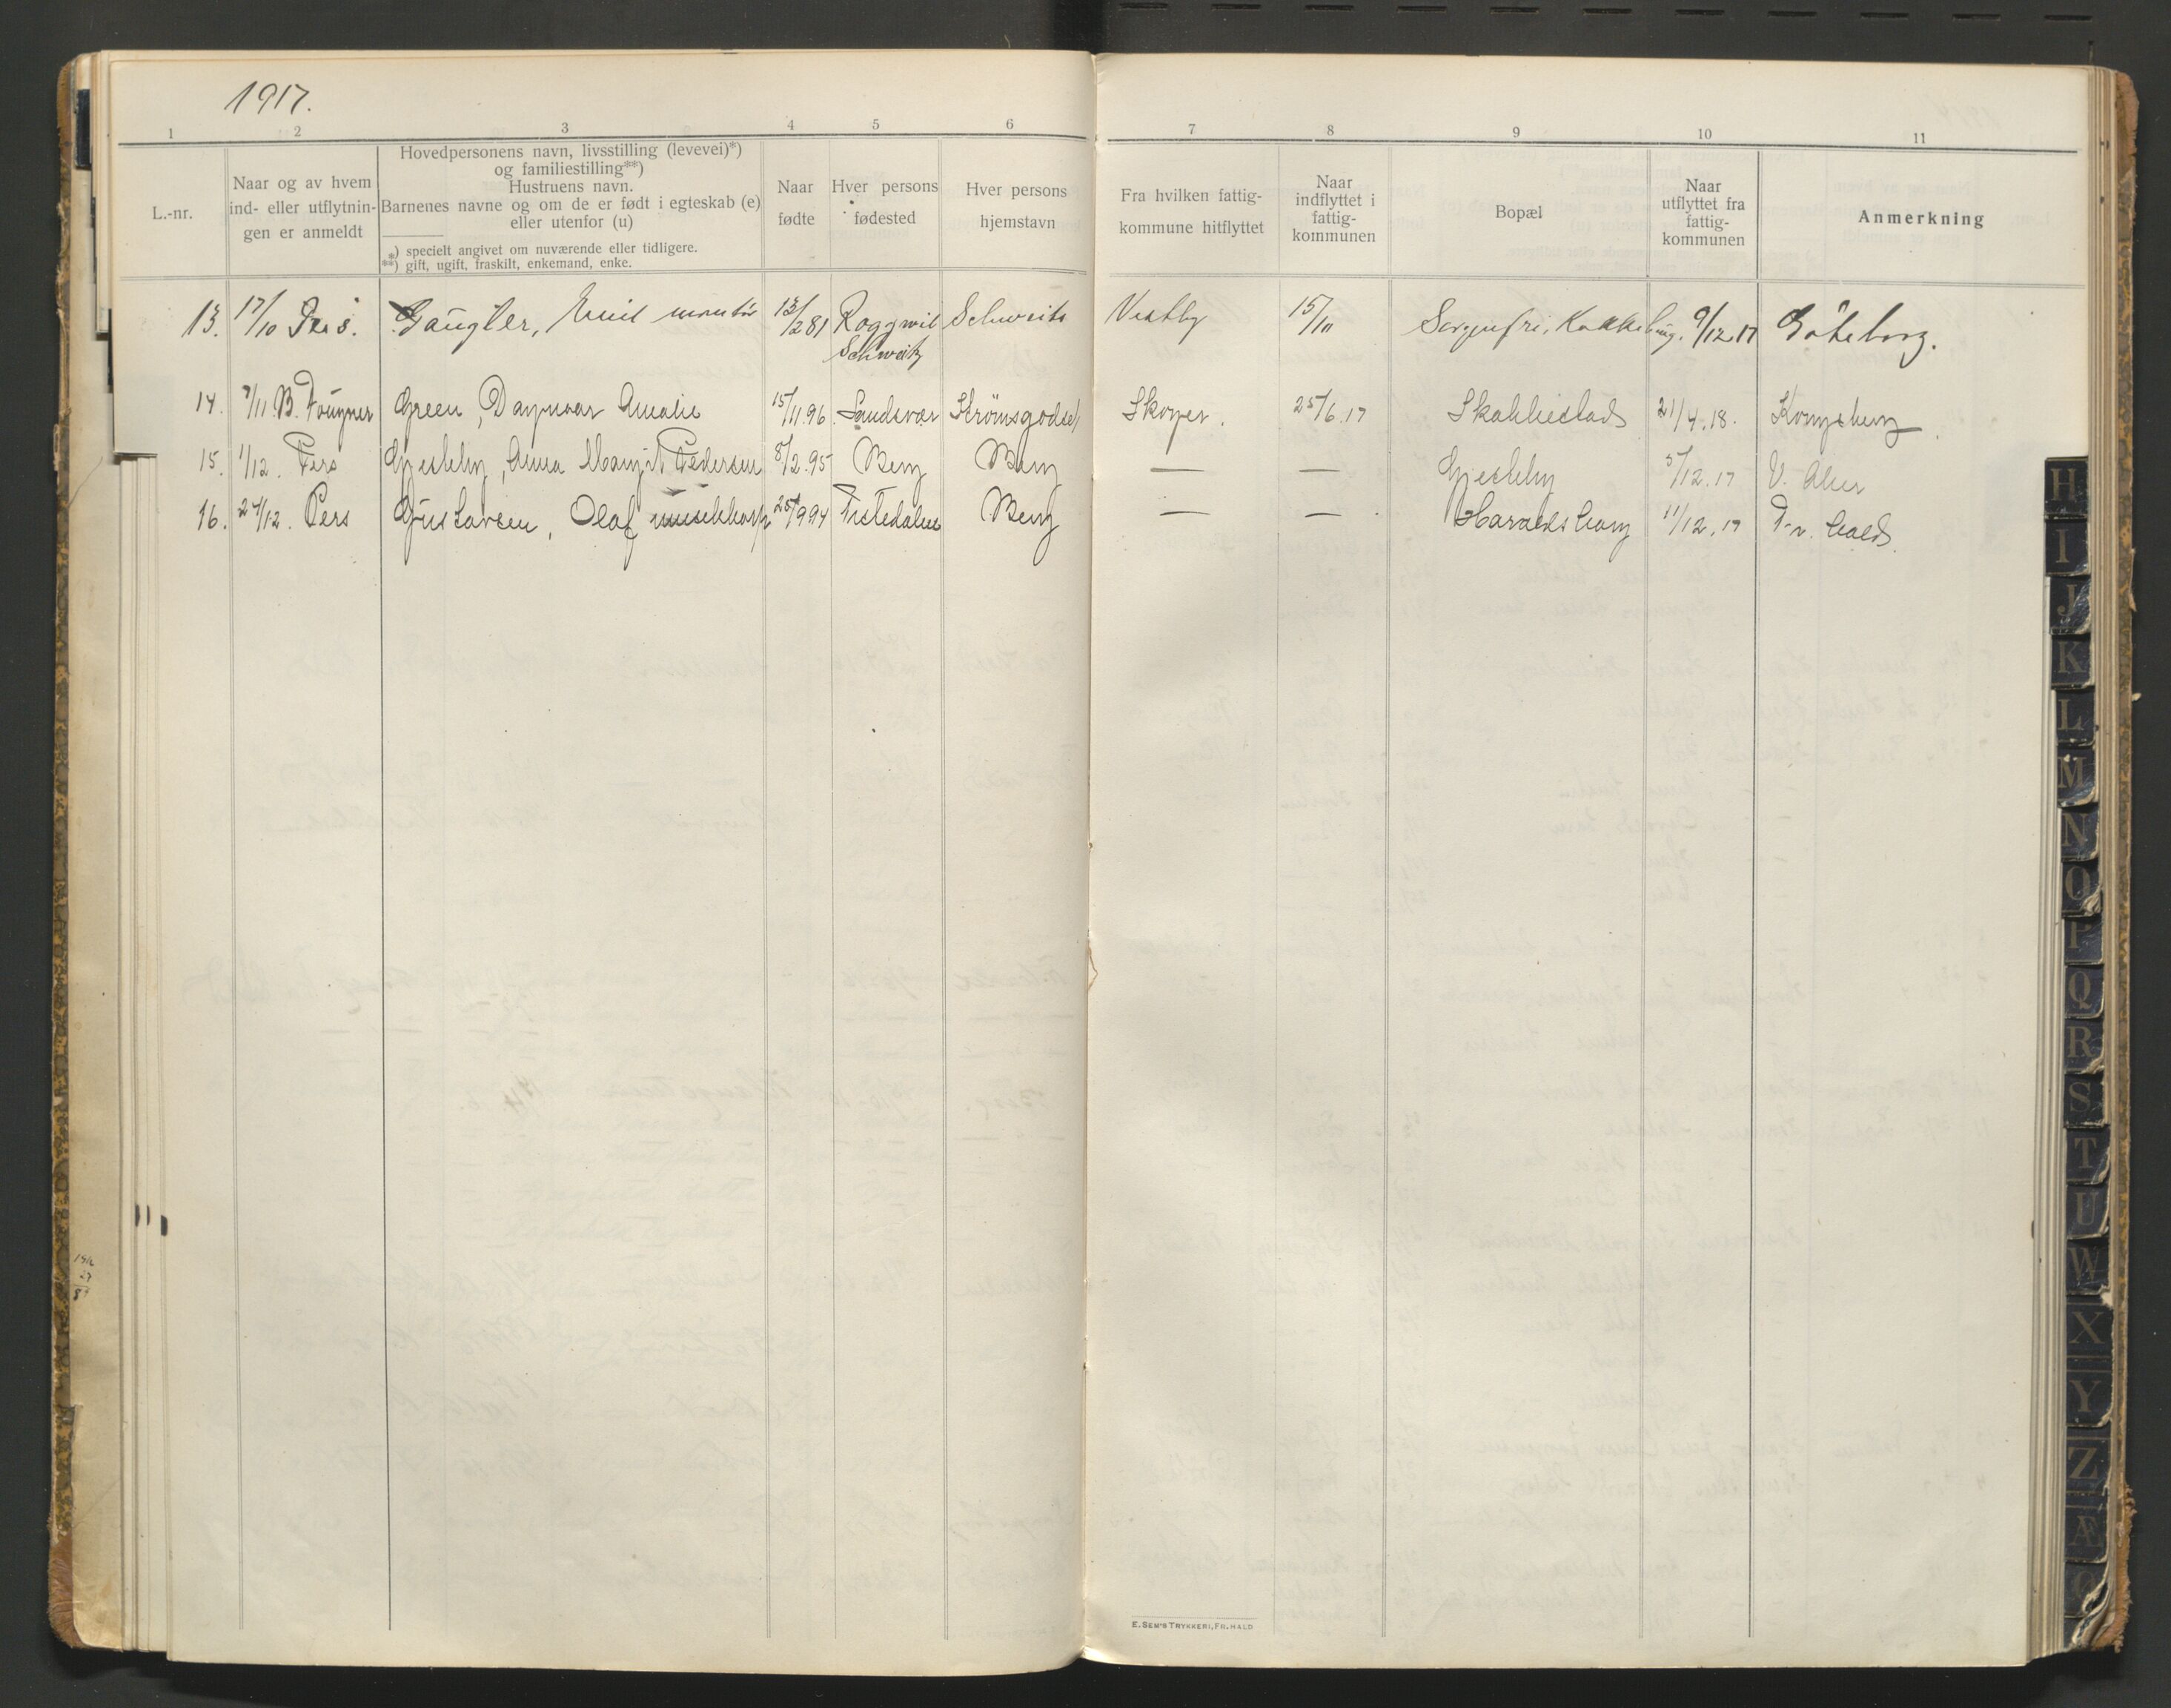 1917.
1 2 3 4 5 6 7 8 9 10 11
L.-nr.
Naar og av hvem
ind- eller utflytnin-
gen er anmeldt
Hovedpersonens navn, livsstilling (levevei)*)
og familiestilling**)
Hustruens navn.
Barnenes navne og om de er født i egteskab (e)
eller utenfor (u)
*) specielt angivet om nuværende eller tidligere.
**) gift, ugift, fraskilt, enkemand, enke.
Naar
fødte
Hver persons
fødested
Hver persons
hjemstavn
Fra hvilken fattig-
kommune hitflyttet
Naar
indflyttet i
fattig-
kommunen
Bopæl
Naar
utflyttet fra
fattig-
kommunen
Anmerkning
13. 17/10 Gaugler, Emil montør 13/2 81 Roggwil Schweits Vestby 15/10 Sorgenfri, 9/12.17 Göteborg.
Schweitz
14. 7/11. B. Green, Dagmar Amalie 15/11.96 Sandsvær Strömsgodset Skoger. 25/6.17 21/4.18. Kongsberg
15. 1/12. Pers Gjeddeby, Anna Margit Pedersen 8/2.95 Berg Berg — — Gjeddeby 5/12.17 V. Aker
16. 24/12. Pers Gustavsen, Olaf 25/9 94 Tistedalen Berg — — 11/12.17 Fr. hald.
E. SEM'S TRYKKERI, FR.HALD
H
I
J
K
L
M
N
O
P
Q
R
S
T
U
W
X
Y
Z
Æ
Ø